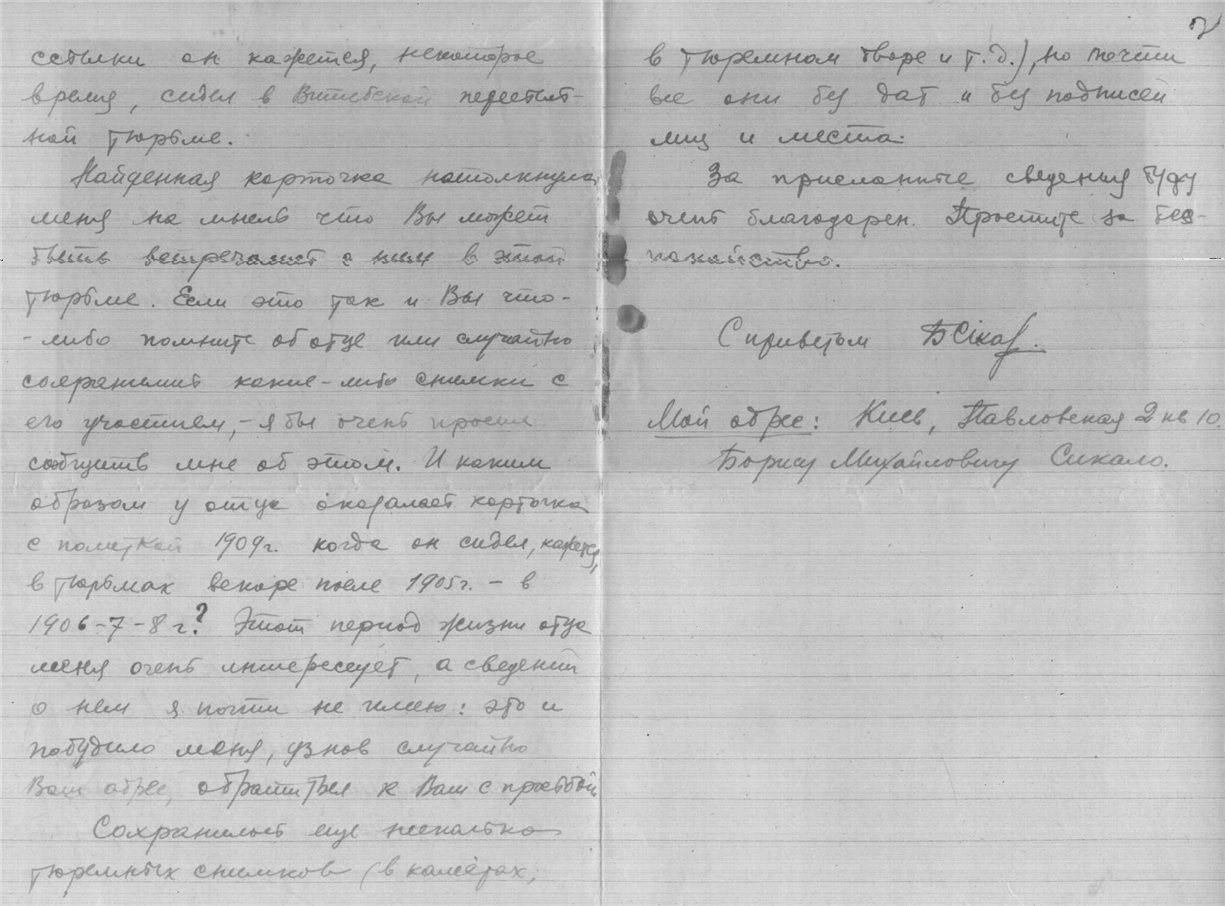 ссылки он кажется, некоторое
время, сидел в Витебской пересыль-
ной тюрьме.
Найденная карточка натолкнула
меня на мысль что Вы может
быть встречались с ним в этой
тюрьме. Если это так и Вы что-
-либо помните об отце или случайно
сохранились какие-либо снимки с
его участием, - я бы очень просил
сообщить мне об этом. И каким
образом у отца оказалась карточка
с пометкой 1909г. когда он сидел, кажется,
в тюрьмах вскоре после 1905г. - в
1906-7-8 г.? Этот период жизни отца
меня очень интересует, а сведений
о нем я почти не имею: это и
побудило меня, узнав случайно
Ваш адрес, обратиться к Вам с просьбой
Сохранилось еще несколько
тюремных снимков (в камерах,
2
в тюремном дворе и т.д.), но почти
все они без дат и без подписей
лиц и места.
За присланные сведения буду
очень благодарен. Простите за бес-
покойство.
С приветом БСікал.
Мой адрес: Киев, Павловская 2 кв 10.
Борису Михайловичу Сикало.